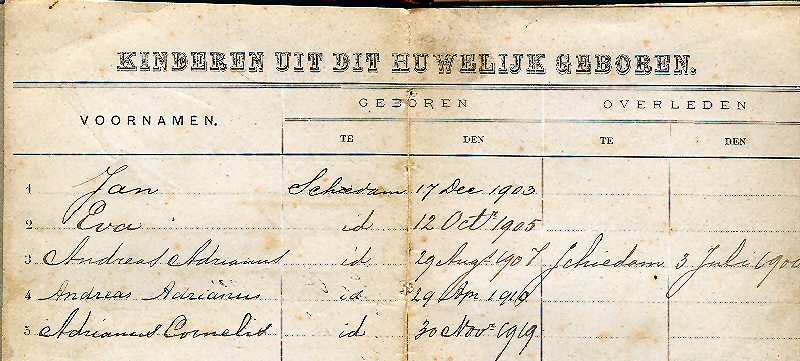 KINDEREN UIT DIT HUWELIJK GEBOREN.
GEBOREN OVERLEDEN
VOORNAMEN.
TE DEN TE DEN
1 Jan Schiedam 17 Dec 1903
2 Eva id 12 Octr 1905
3 Andreas Adrianus id 29 Augs 1907 Schiedam 3 Juli
4 Andreas Adrianus id 29 Apr
5 Adrianus Cornelis id 30 Novr 1919